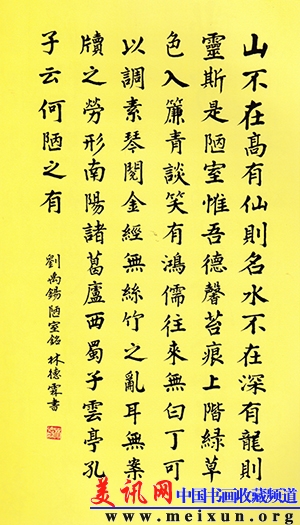 山不在高有仙則名水不在深有龍則
靈斯是陋室惟吾德馨苔痕上階緑草
色入簾青談笑有鴻儒往來無白丁可
以調素琴閱金經無絲竹之亂耳無案
牘之勞形南陽諸葛廬西蜀子雲亭孔
子云何陋之有
劉禹錫陋室銘 林德霖書
美讯网 中国书画收藏频道
www.meixun.org